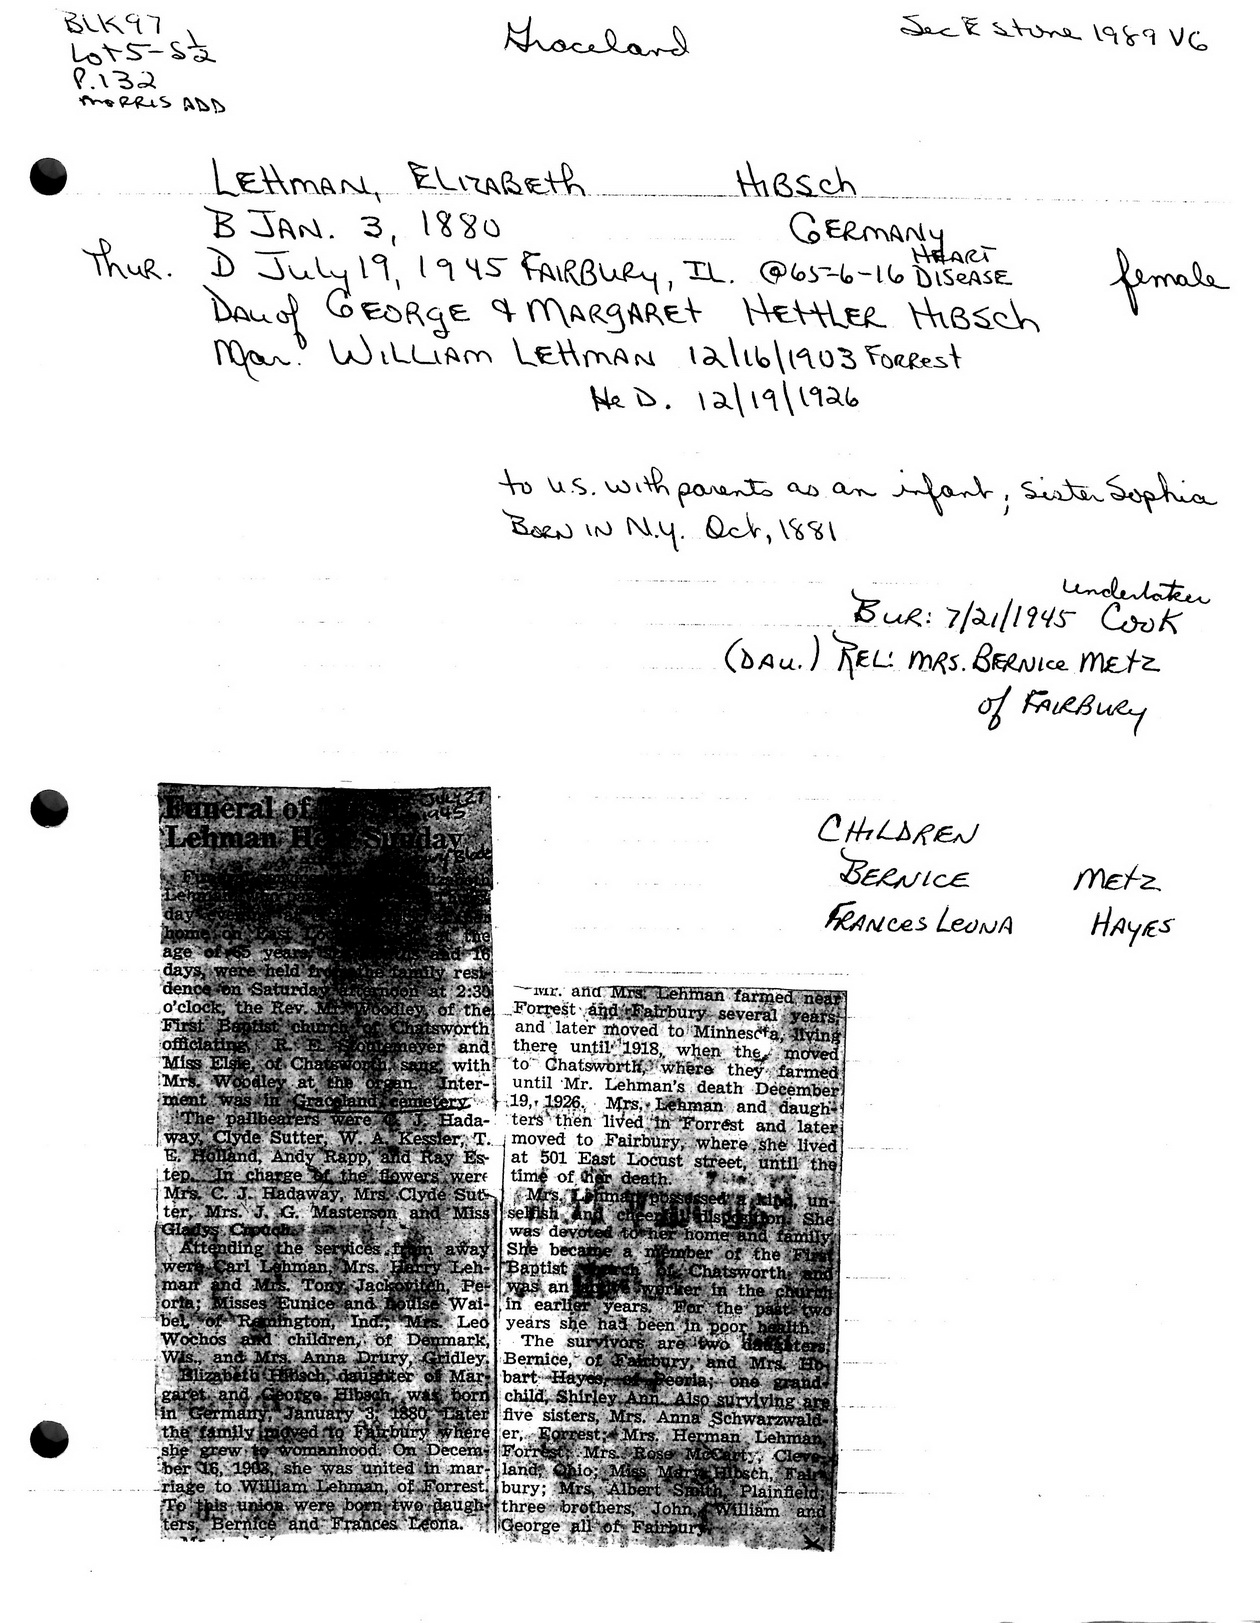 BLK97
Lot 5-S½
P.132
MORRIS ADD
Graceland
Sec E Stone 1989 VG
LEHMAN, ELIZABETH HIBSCH
B JAN. 3, 1880 GERMANY
Thur. D July 19, 1945 FAIRBURY, IL. @65-6-16 HEART DISEASE female
Dau of GEORGE & MARGARET HETTLER HIBSCH
Mar. WILLIAM LEHMAN 12/16/1903 FORREST
He D. 12/19/1926
to U.S. with parents as an infant; sister Sophia
BORN IN N.Y. Oct, 1881
undertaker
BUR: 7/21/1945 COOK
(DAU.) REL: MRS. BERNICE METZ
of FAIRBURY
CHILDREN
BERNICE METZ
FRANCES LEONA HAYES
Funeral of July 27
1945
Lehman Held Sunday
Blade
day evening at
home on East the
age of 65 years, and 16
days, were held from the family resi-
dence on Saturday afternoon at 2:30
o'clock, the Rev. Woodley, of the
First Baptist church of Chatsworth
officiating. R. E. Stoutemeyer and
Miss Elsie, of Chatsworth, sang, with
Mrs. Woodley at the organ. Inter-
ment was in Graceland cemetery.
The pallbearers were C. J. Hada-
way, Clyde Sutter, W. A. Kessler, T.
E. Holland, Andy Rapp, and Ray Es-
tep. In charge of the flowers were
Mrs. C. J. Hadaway, Mrs. Clyde Sut-
ter, Mrs. J. G. Masterson and Miss
Gladys Crouch.
Attending the services from away
were Carl Lehman, Mrs. Harry Leh-
man and Mrs. Tony Jackovitch, Pe-
oria; Misses Eunice and Louise Wai-
bel, of Remington, Ind.; Mrs. Leo
Wochos and children, of Denmark,
Wis., and Mrs. Anna Drury, Gridley.
Elizabeth Hibsch, daughter of Mar-
garet and George Hibsch, was born
in Germany, January 3, 1880. Later
the family moved to Fairbury where
she grew to womanhood. On Decem-
ber 16, 1903, she was united in mar-
riage to William Lehman, of Forrest.
To this union were born two daugh-
ters, Bernice and Frances Leona.
Mr. and Mrs. Lehman farmed near
Forrest and Fairbury several years,
and later moved to Minnesota, living
there until 1918, when they moved
to Chatsworth, where they farmed
until Mr. Lehman's death December
19, 1926. Mrs. Lehman and daugh-
ters then lived in Forrest and later
moved to Fairbury, where she lived
at 501 East Locust street, until the
time of her death.
Mrs. Lehman possessed a kind, un-
selfish and cheerful disposition. She
was devoted to her home and family.
She became a member of the First
Baptist church of Chatsworth and
was an active worker in the church
in earlier years. For the past two
years she had been in poor health.
The survivors are two daughters,
Bernice, of Fairbury, and Mrs. Ho-
bart Hayes, of Peoria; one grand-
child, Shirley Ann. Also surviving are
five sisters, Mrs. Anna Schwarzwald-
er, Forrest; Mrs. Herman Lehman,
Forrest; Mrs. Rose McCarty, Cleve-
land, Ohio; Miss Mary Hibsch, Fair-
bury; Mrs. Albert Smith, Plainfield;
three brothers, John, William and
George all of Fairbury.